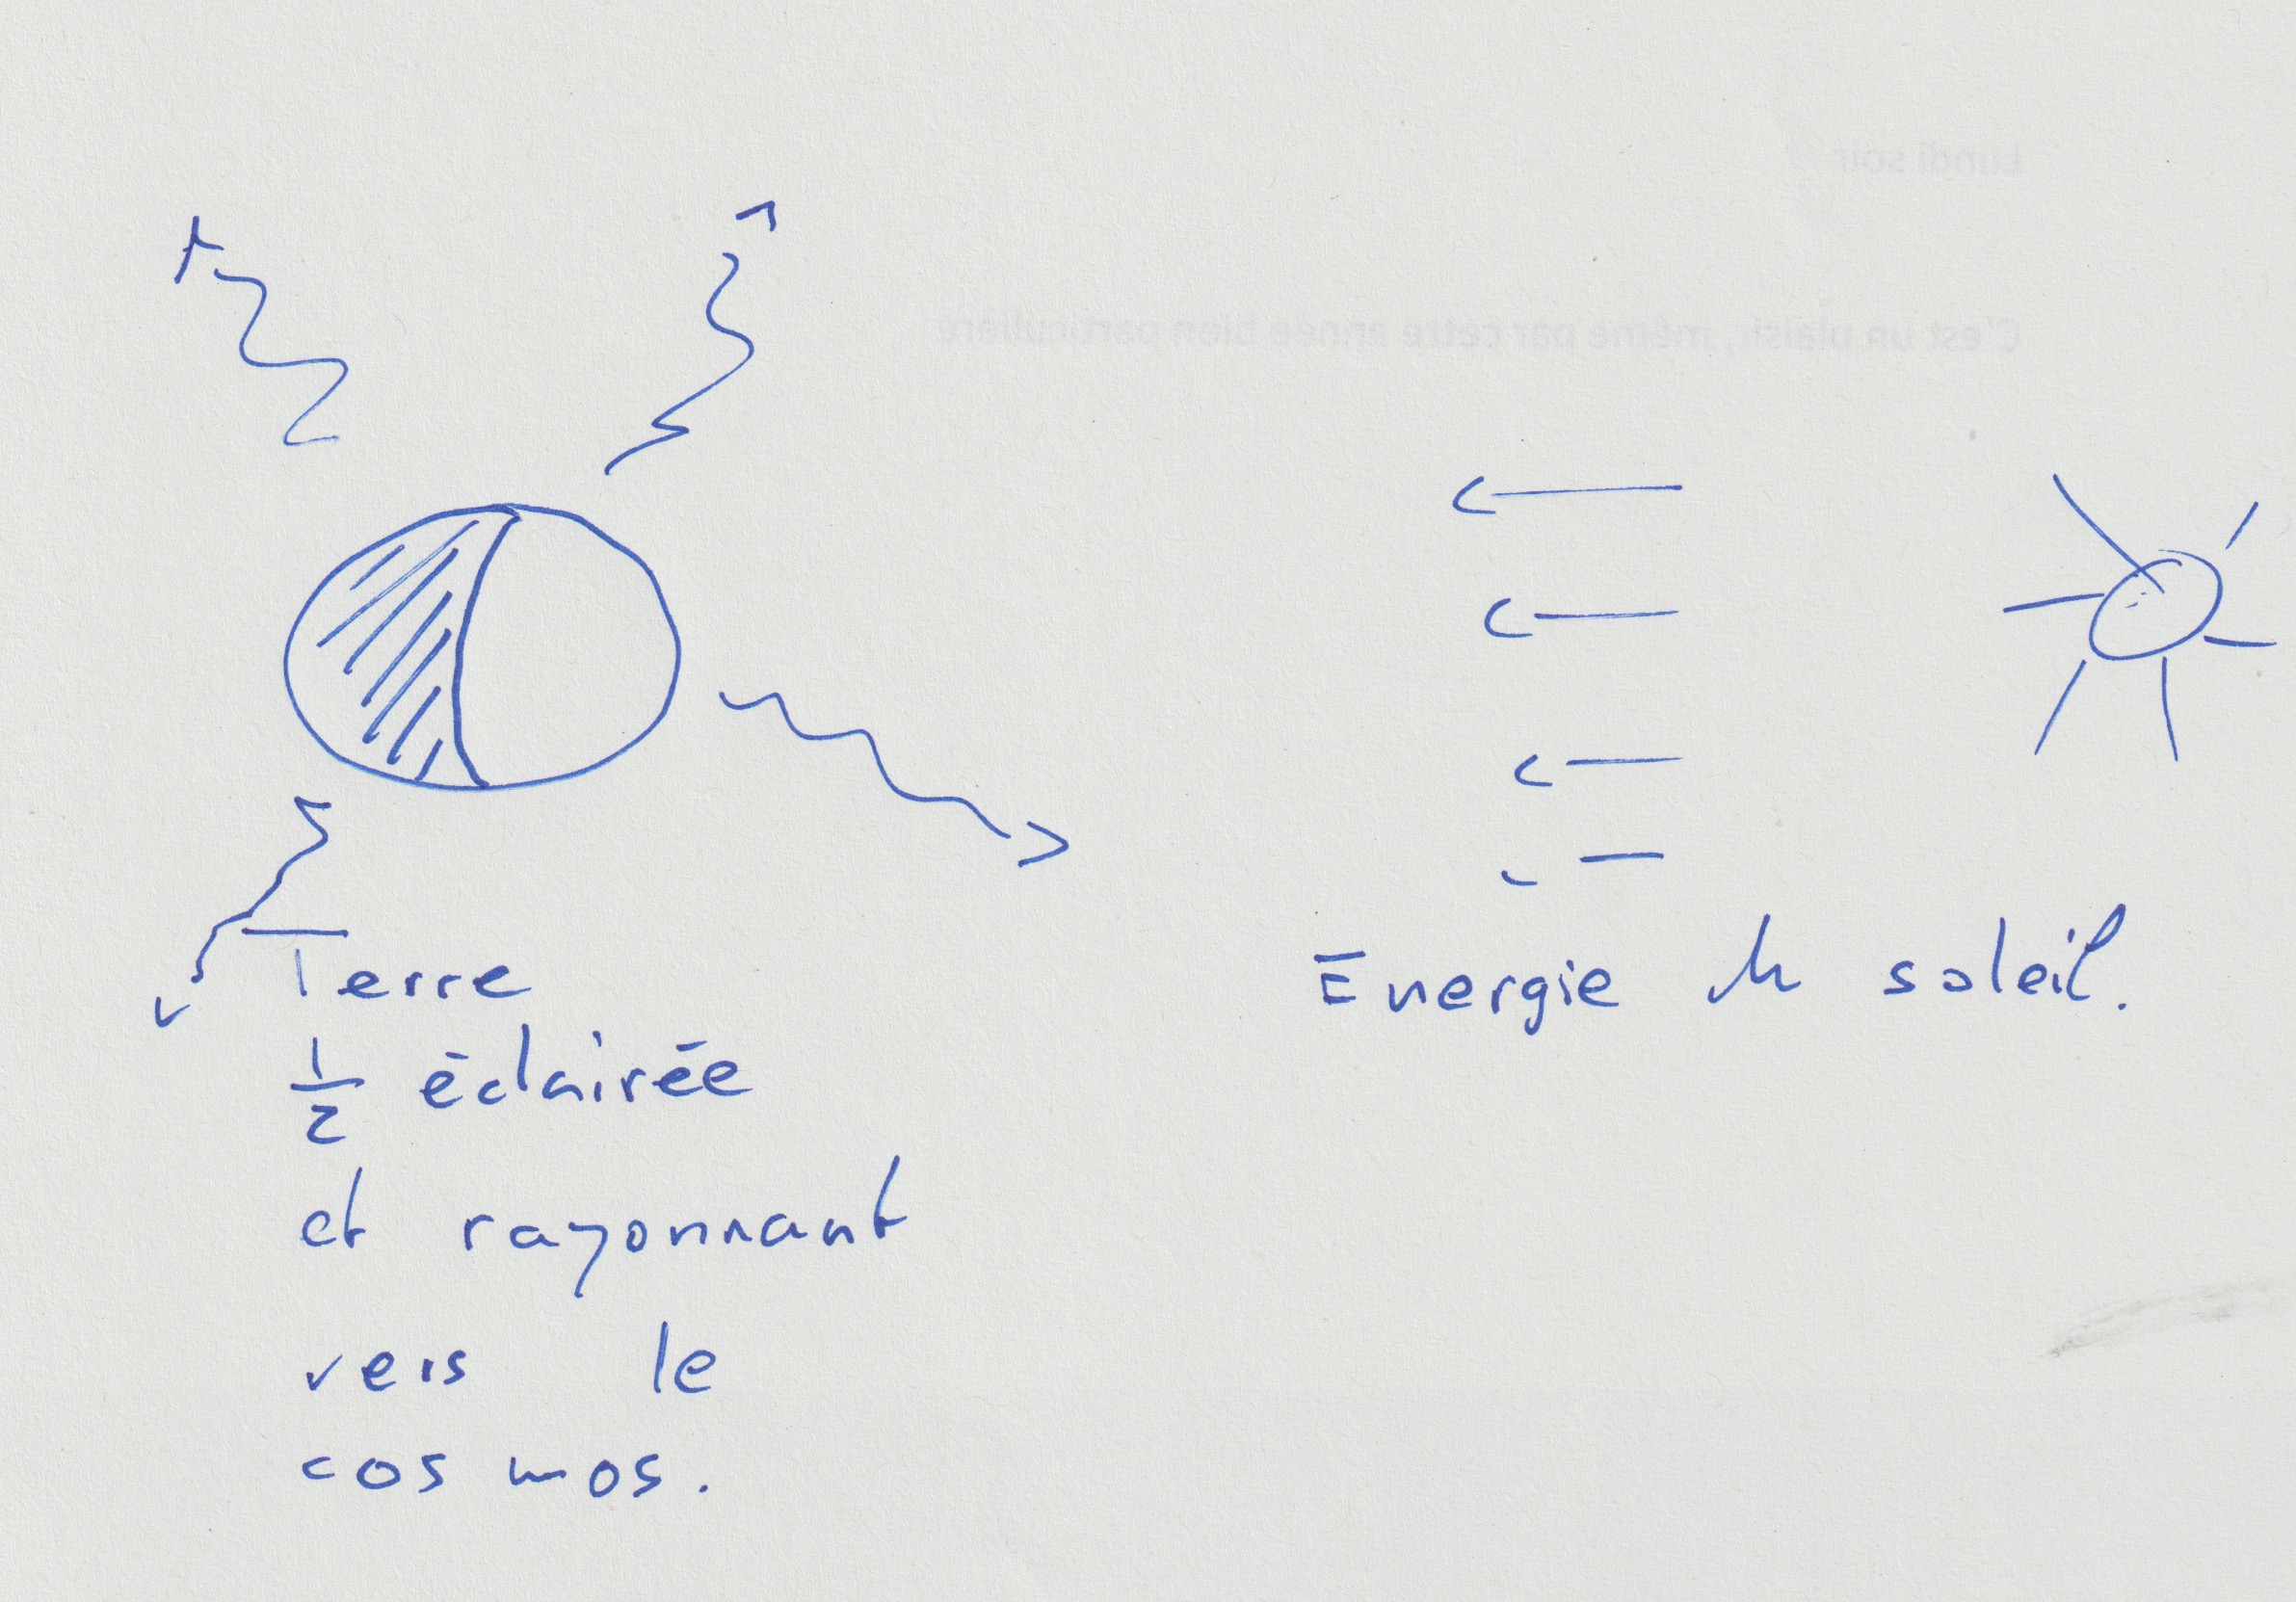 Lundi soir
C'est un plaisir, même par cette année bien particulière
Energie du soleil.
Terre
1/2 éclairée
et rayonnant
vers le
cosmos.